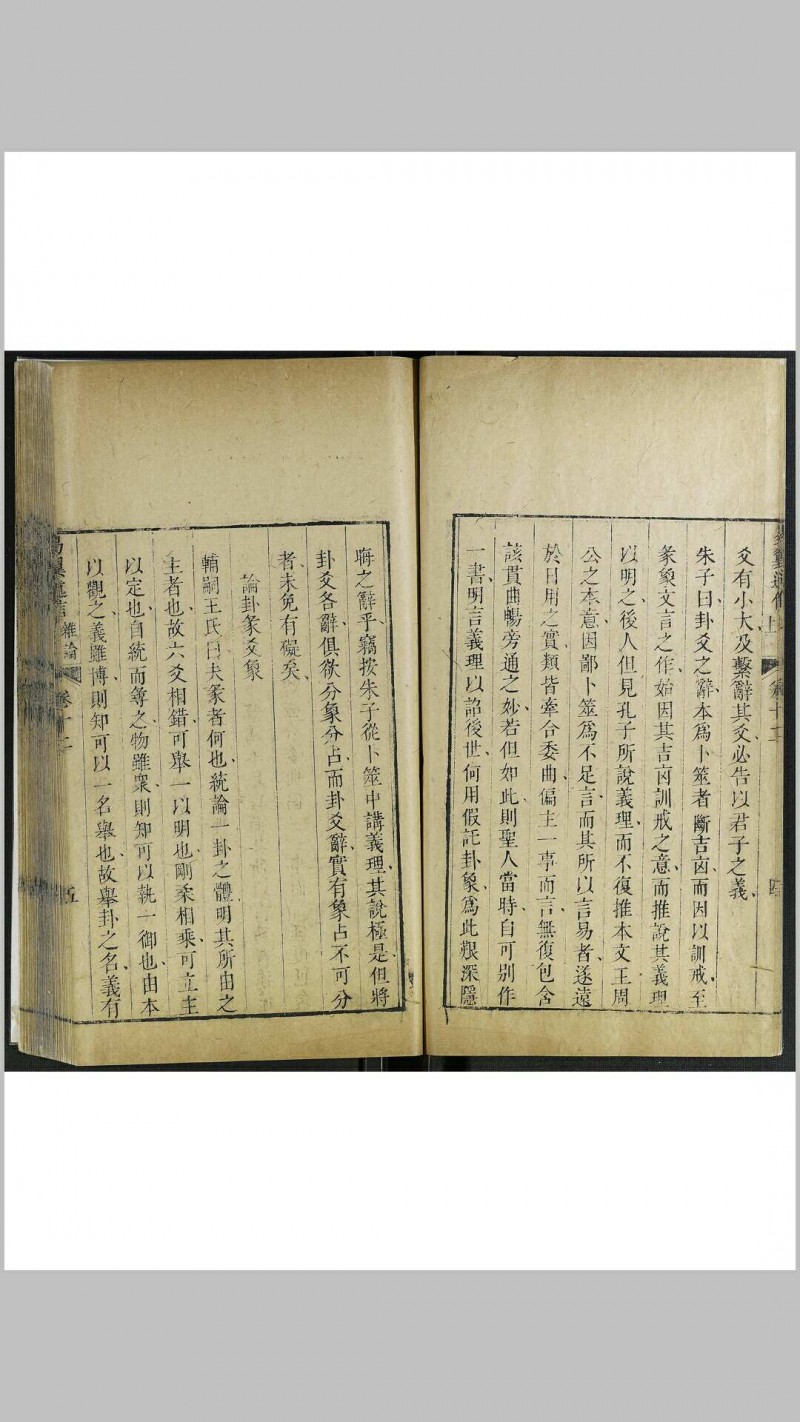 爻有小大及繫辭其爻必告以君子之義
朱子曰卦爻之辭本爲卜筮者斷吉凶而因以訓戒至
彖象文言之作始因其吉凶訓戒之意而推說其義理
以明之後人但見孔子所說義理而不復推本文王周
公之本意因鄙卜筮爲不足言而其所以言易者遂遠
於日用之實類皆牽合委曲偏主一事而言無復包含
該貫曲暢旁通之妙若但如此則聖人當時自可別作
一書明言義理以詔後世何用假託卦象爲此艱深隱
晦之辭乎竊按朱子從卜筮中講義理其說極是但將
卦爻各辭俱欲分象分占而卦爻辭實有象占不可分
者未免有礙矣
論卦彖爻象
輔嗣王氏曰夫彖者何也統論一卦之體明其所由之
主者也故六爻相錯可舉一以明也剛柔相乘可立主
以定也自統而尋之物雖衆則知可以執一御也由本
以觀之義雖博則知可以一名舉也故舉卦之名義有
雜論
卷十二
五